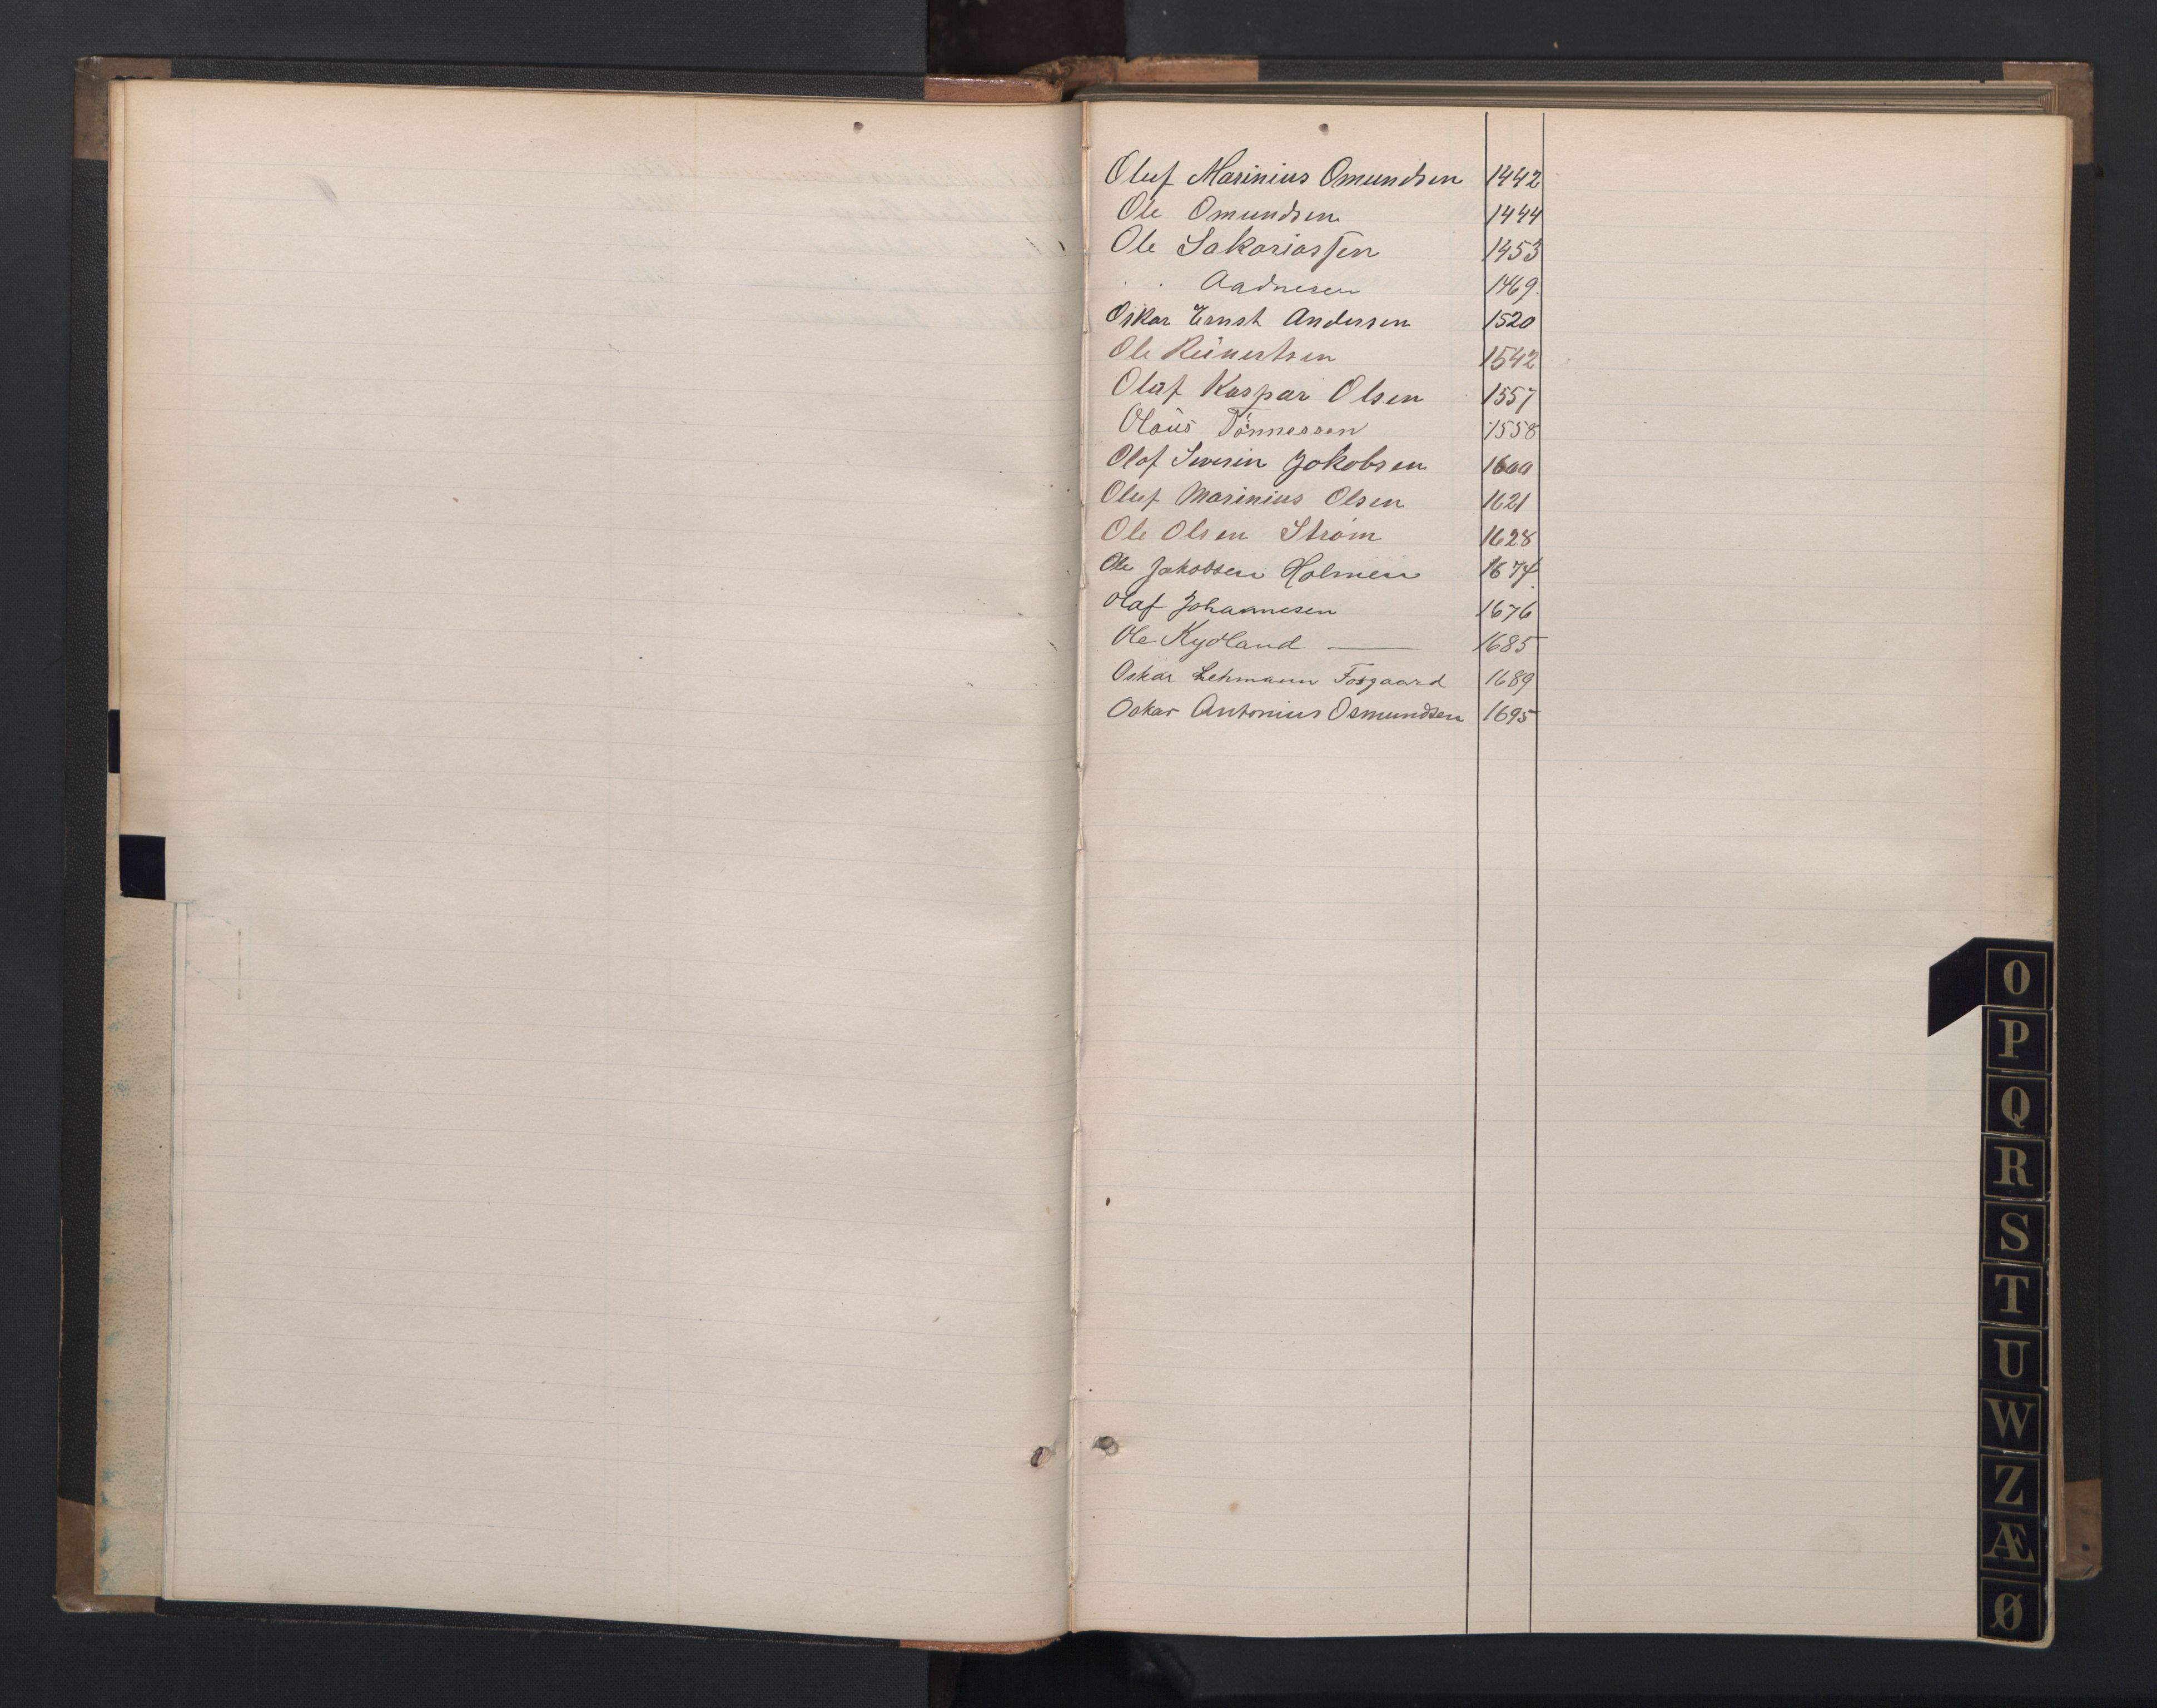 Oluf Marinius Omundsen 1442
Ole Omundsen 1444
Ole Sakariassen 1453
" " Aadnesen 1469.
Oskar Ernst Andersen 1520
Ole Reinertsen 1542
Olaf Kaspar Olsen 1557
Olaus Tönnessen 1558
Olaf Severin Jakobsen 1600
Oluf Marinius Olsen 1621
Ole Olsen Strøm 1628
Ole Jakobsen Holmen 1674
Olaf Johannesen 1676
Ole Kydland — 1685
Oskar Lehmann Fosgaard 1689
Oskar Antonius Osmundsen 1695
O
P
Q
R
S
T
U
W
Z
Æ
Ø